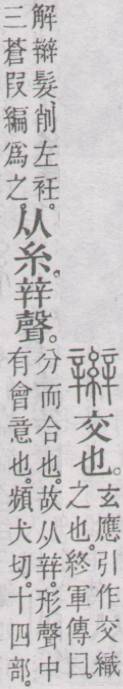 辮交也。
玄應引作交織
之也。終軍傳曰。
解辮髮。削左衽。
三蒼叚編爲之。
从糸。辡聲。
分而合也。故从辡。形聲中
有會意也。頻犬切。十四部。